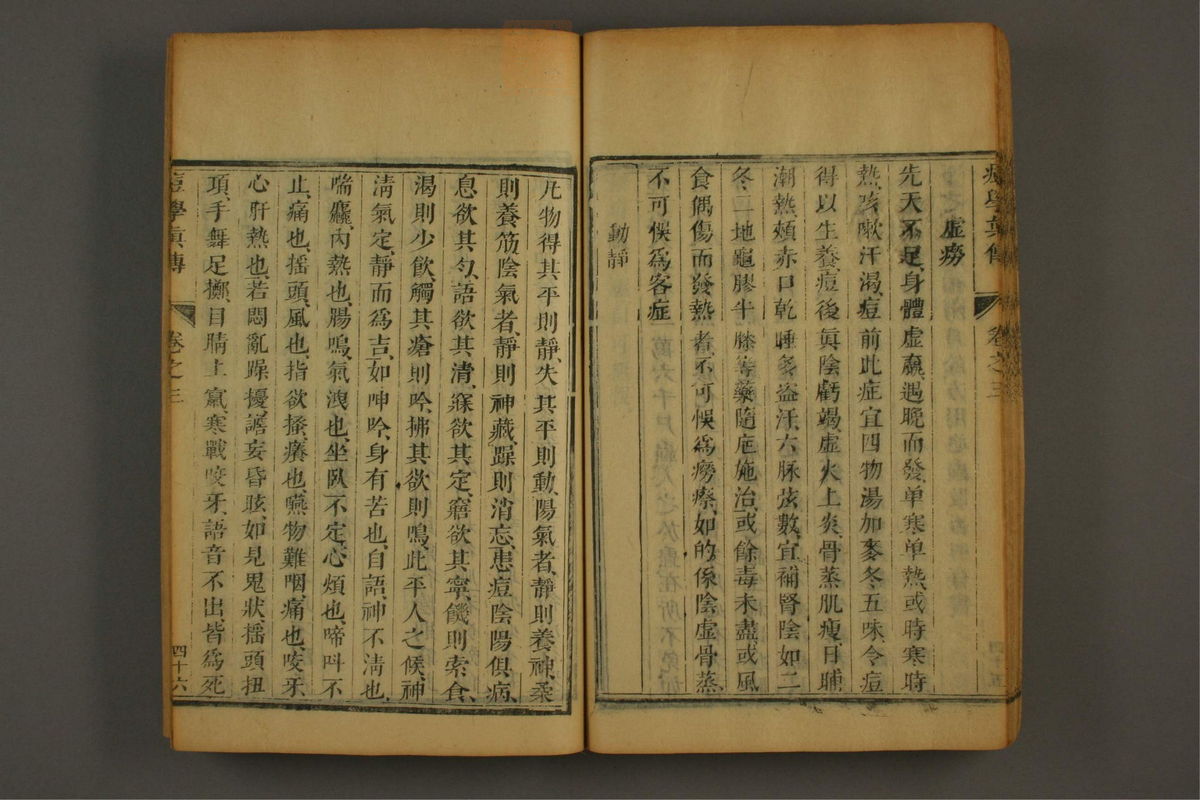 痘學真傳 卷之三
虛癆
先天不足、身體虛羸、遇晚而發、单寒单熱、或時寒時
熱、咳嗽汗渴、痘前此症宜四物湯加麥冬五味、令痘
得以生養、痘後眞陰虧竭、虛火上炎、骨蒸肌瘦、日晡
潮熱、頰赤口乾、睡多盗汗、六脉弦數、宜補腎陰、如二
冬二地龜膠牛膝等藥、隨症施治、或餘毒未盡、或風
食偶傷而發熱者、不可悞爲癆瘵、如的係陰虛骨蒸、
不可悞爲客症
動靜
凡物得其平則靜、失其平則動、陽氣者、靜則養神、柔
則養筋、陰氣者、靜則神藏、躁則消忘、患痘陰陽俱病、
息欲其勻、語欲其清、寐欲其定、寤欲其寧、饑則索食、
渴則少飲、觸其瘡則吟、拂其欲則鳴、此平人之候、神
淸氣定、靜而爲吉、如呻吟、身有苦也、自語、神不淸也、
喘麤、內熱也、腸鳴、氣洩也、坐臥不定、心煩也、啼呌不
止、痛也、揺頭、風也、指欲搔、癢也、嚥物難、咽痛也、咬牙、
心肝熱也、若悶亂躁擾、譫妄昏眩、如見鬼狀、揺頭扭
項、手舞足擲、目睛上竄、寒戰咬牙、語音不出、皆爲死
痘學眞傳 卷之三 四十六